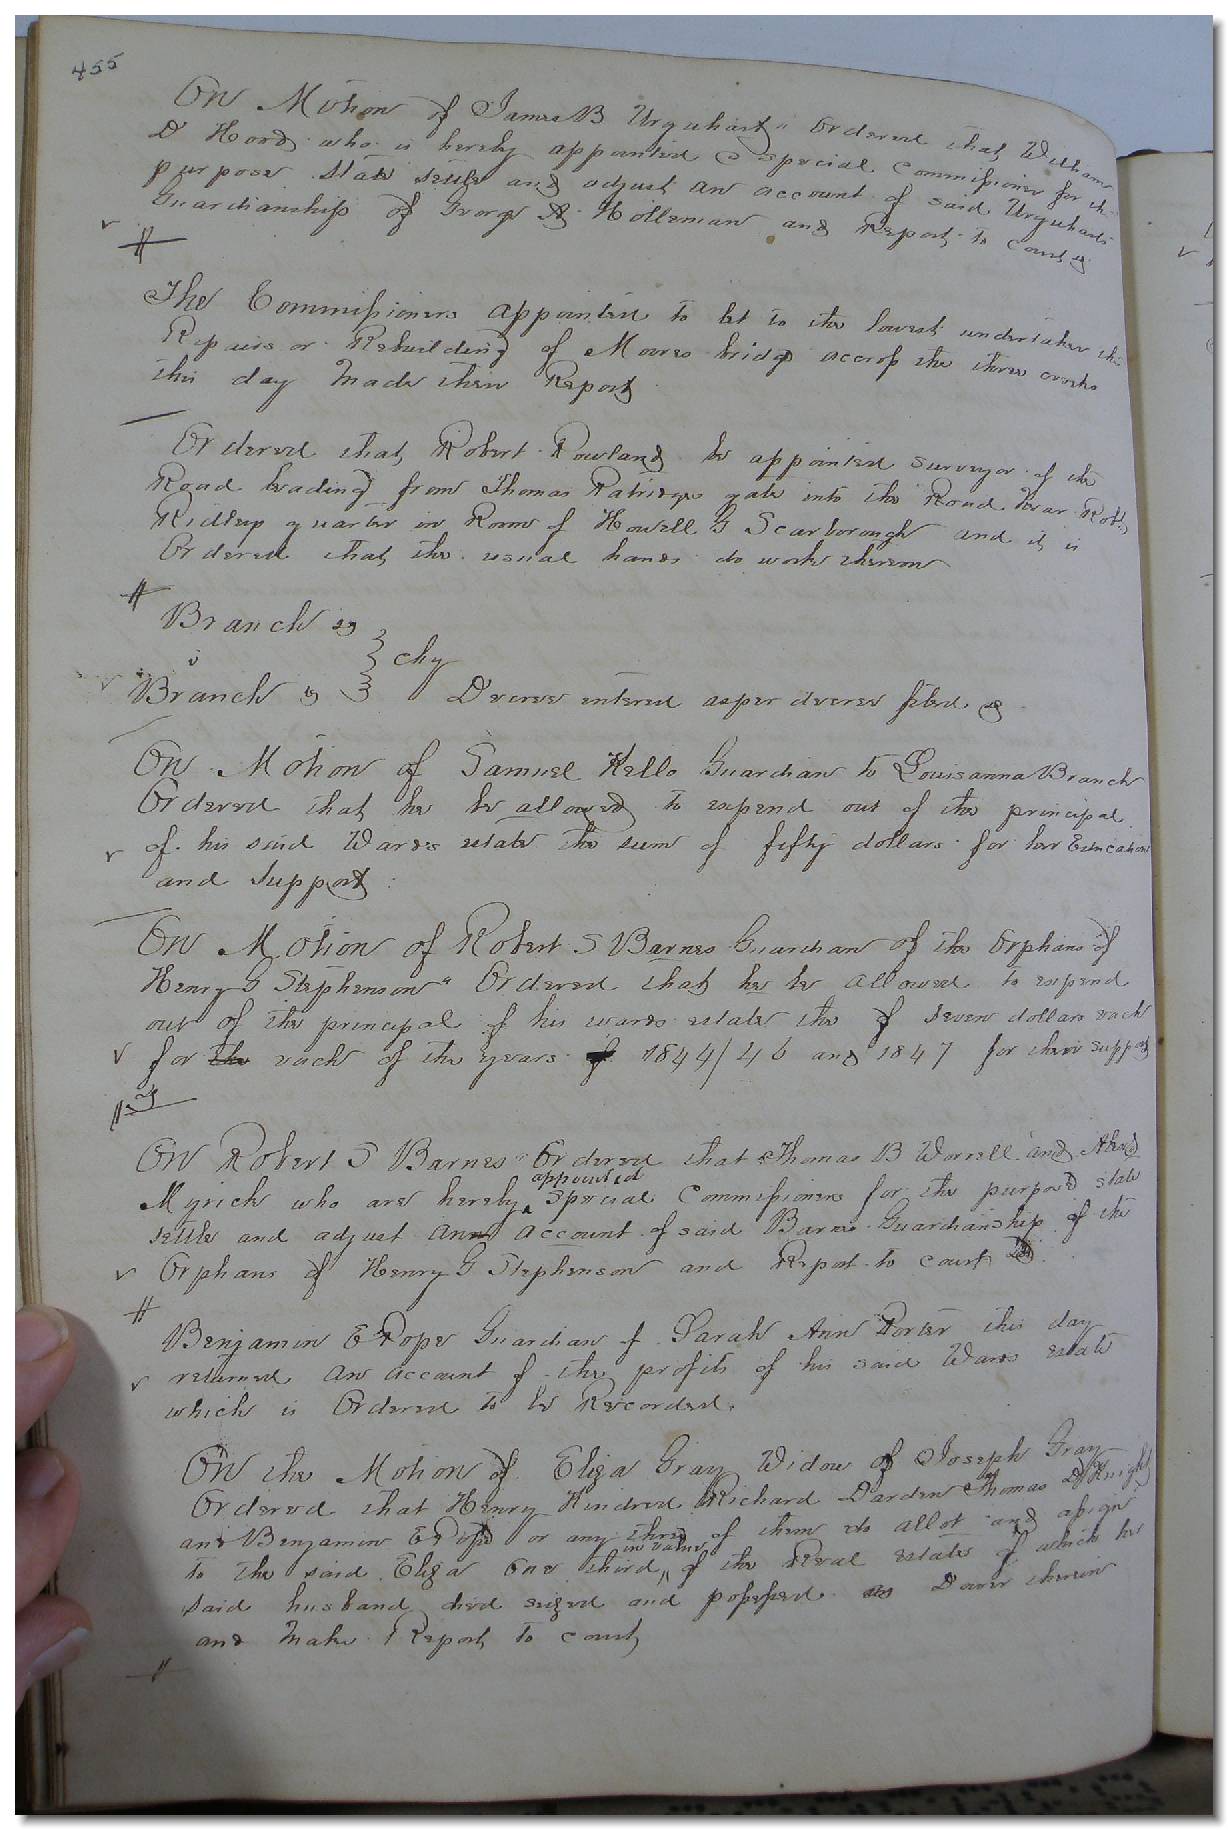 455
On Motion of James B Urquhart " Ordered that William
D Hood who is hereby appointed a special Commissioner for the
purpose state settle and adjust an account of said Urquharts
Guardianship of George A Holleman and Report to Court &
The Commissioners appointed to let to the lowest undertaker the
Repairs or Rebuilding of Moores bridge accross the three creeks
this day Made their Report
Ordered that Robert Rowland be appointed surveyor of the
Road leading from Thomas Patridges gate into the Road Near Robt
quarter in Room of Howell G Scarborough and it is
Ordered that the usual hands do work thereon
Branch &
v } chy
Branch & Decree entered as per decree filed &
On Motion of Samuel Kello Guardian to Louisanna Branch
Ordered that he be allowed to expend out of the principal
of his said Wards estate the sum of fifty dollars for her Education
and support
On Motion of Robert S Barnes Guardian of the Orphans of
Henry G Stephenson " Ordered that he be allowed to expend
out of the principal of his wards estate the of seven dollars each
for the each of the years of 1844/46 and 1847 for their support
On Robert S Barnes " Ordered that Thomas B Worrell and
Myrick who are hereby appointed special Commissioners for the purpose state
settle and adjust ann account of said Barnes Guardianship of the
Orphans of Henry G Stephenson and Report to court
Benjamin E Pope Guardian of Sarah Ann Porter this day
returned an account of the profits of his said Wards estate
which is Ordered to be Recorded.
On the Motion of Eliza Gray Widow of Joseph Gray
Ordered that Henry Kindred Richard Darden Thomas Knight
and Benjamin E Pope or any three of them do allot and assign
to the said Eliza one third in value of the Real estate of which her
said husband died seized and possessed as Dower therein
and Make Report to court